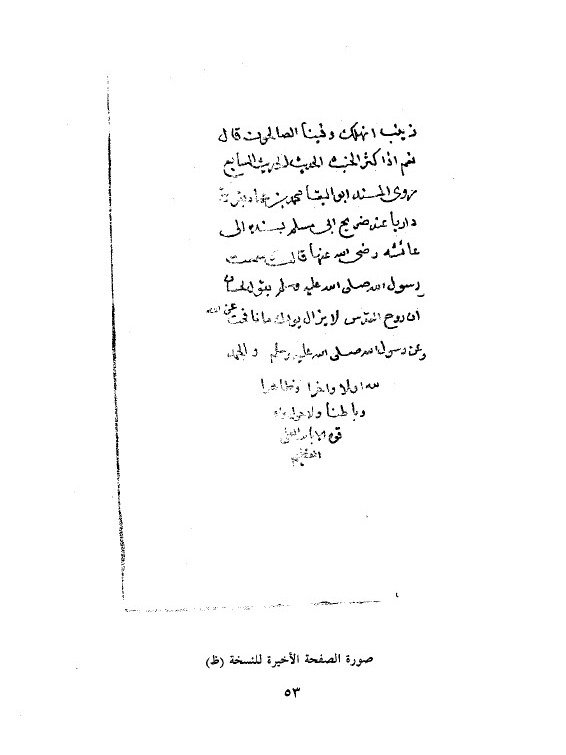 زينب انهلك وفينا الصالحون قال
نعم اذا كثر الخبث الحديث السابع
روى المسند ابو البقا محمد بن
داريا عند ضريح ابى مسلم بسنده الى
عائشه رضى الله عنها قالت سمعت
رسول الله صلى الله عليه وسلم يقول لحسان
ان روح القدس لا يزال يؤيدك ما نافحت عن الله
وعن رسول الله صلى الله عليه وسلم والحمد
لله اولا واخرا وظاهرا
وباطنا ولا حول ولا
قوة الا بالله العلى
العظيم
صورة الصفحة الأخيرة للنسخة (ظ)
٥٣